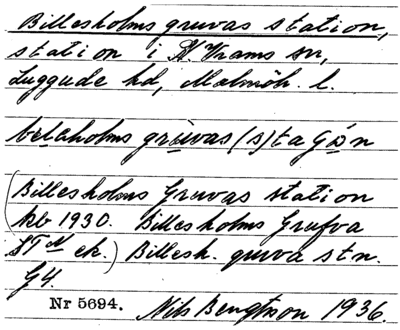 Billesholms gruvas station,
station i N. Vrams sn,
Luggude hd, Malmöh. l.
belæholms gruvas (s)tagon
(Billesholms Gruvas station
kb 1930. Billesholms Grufva
STN ek.) Billesh. gruva stn.
G4.
Nr 5694. Nils Bengtsson 1936.